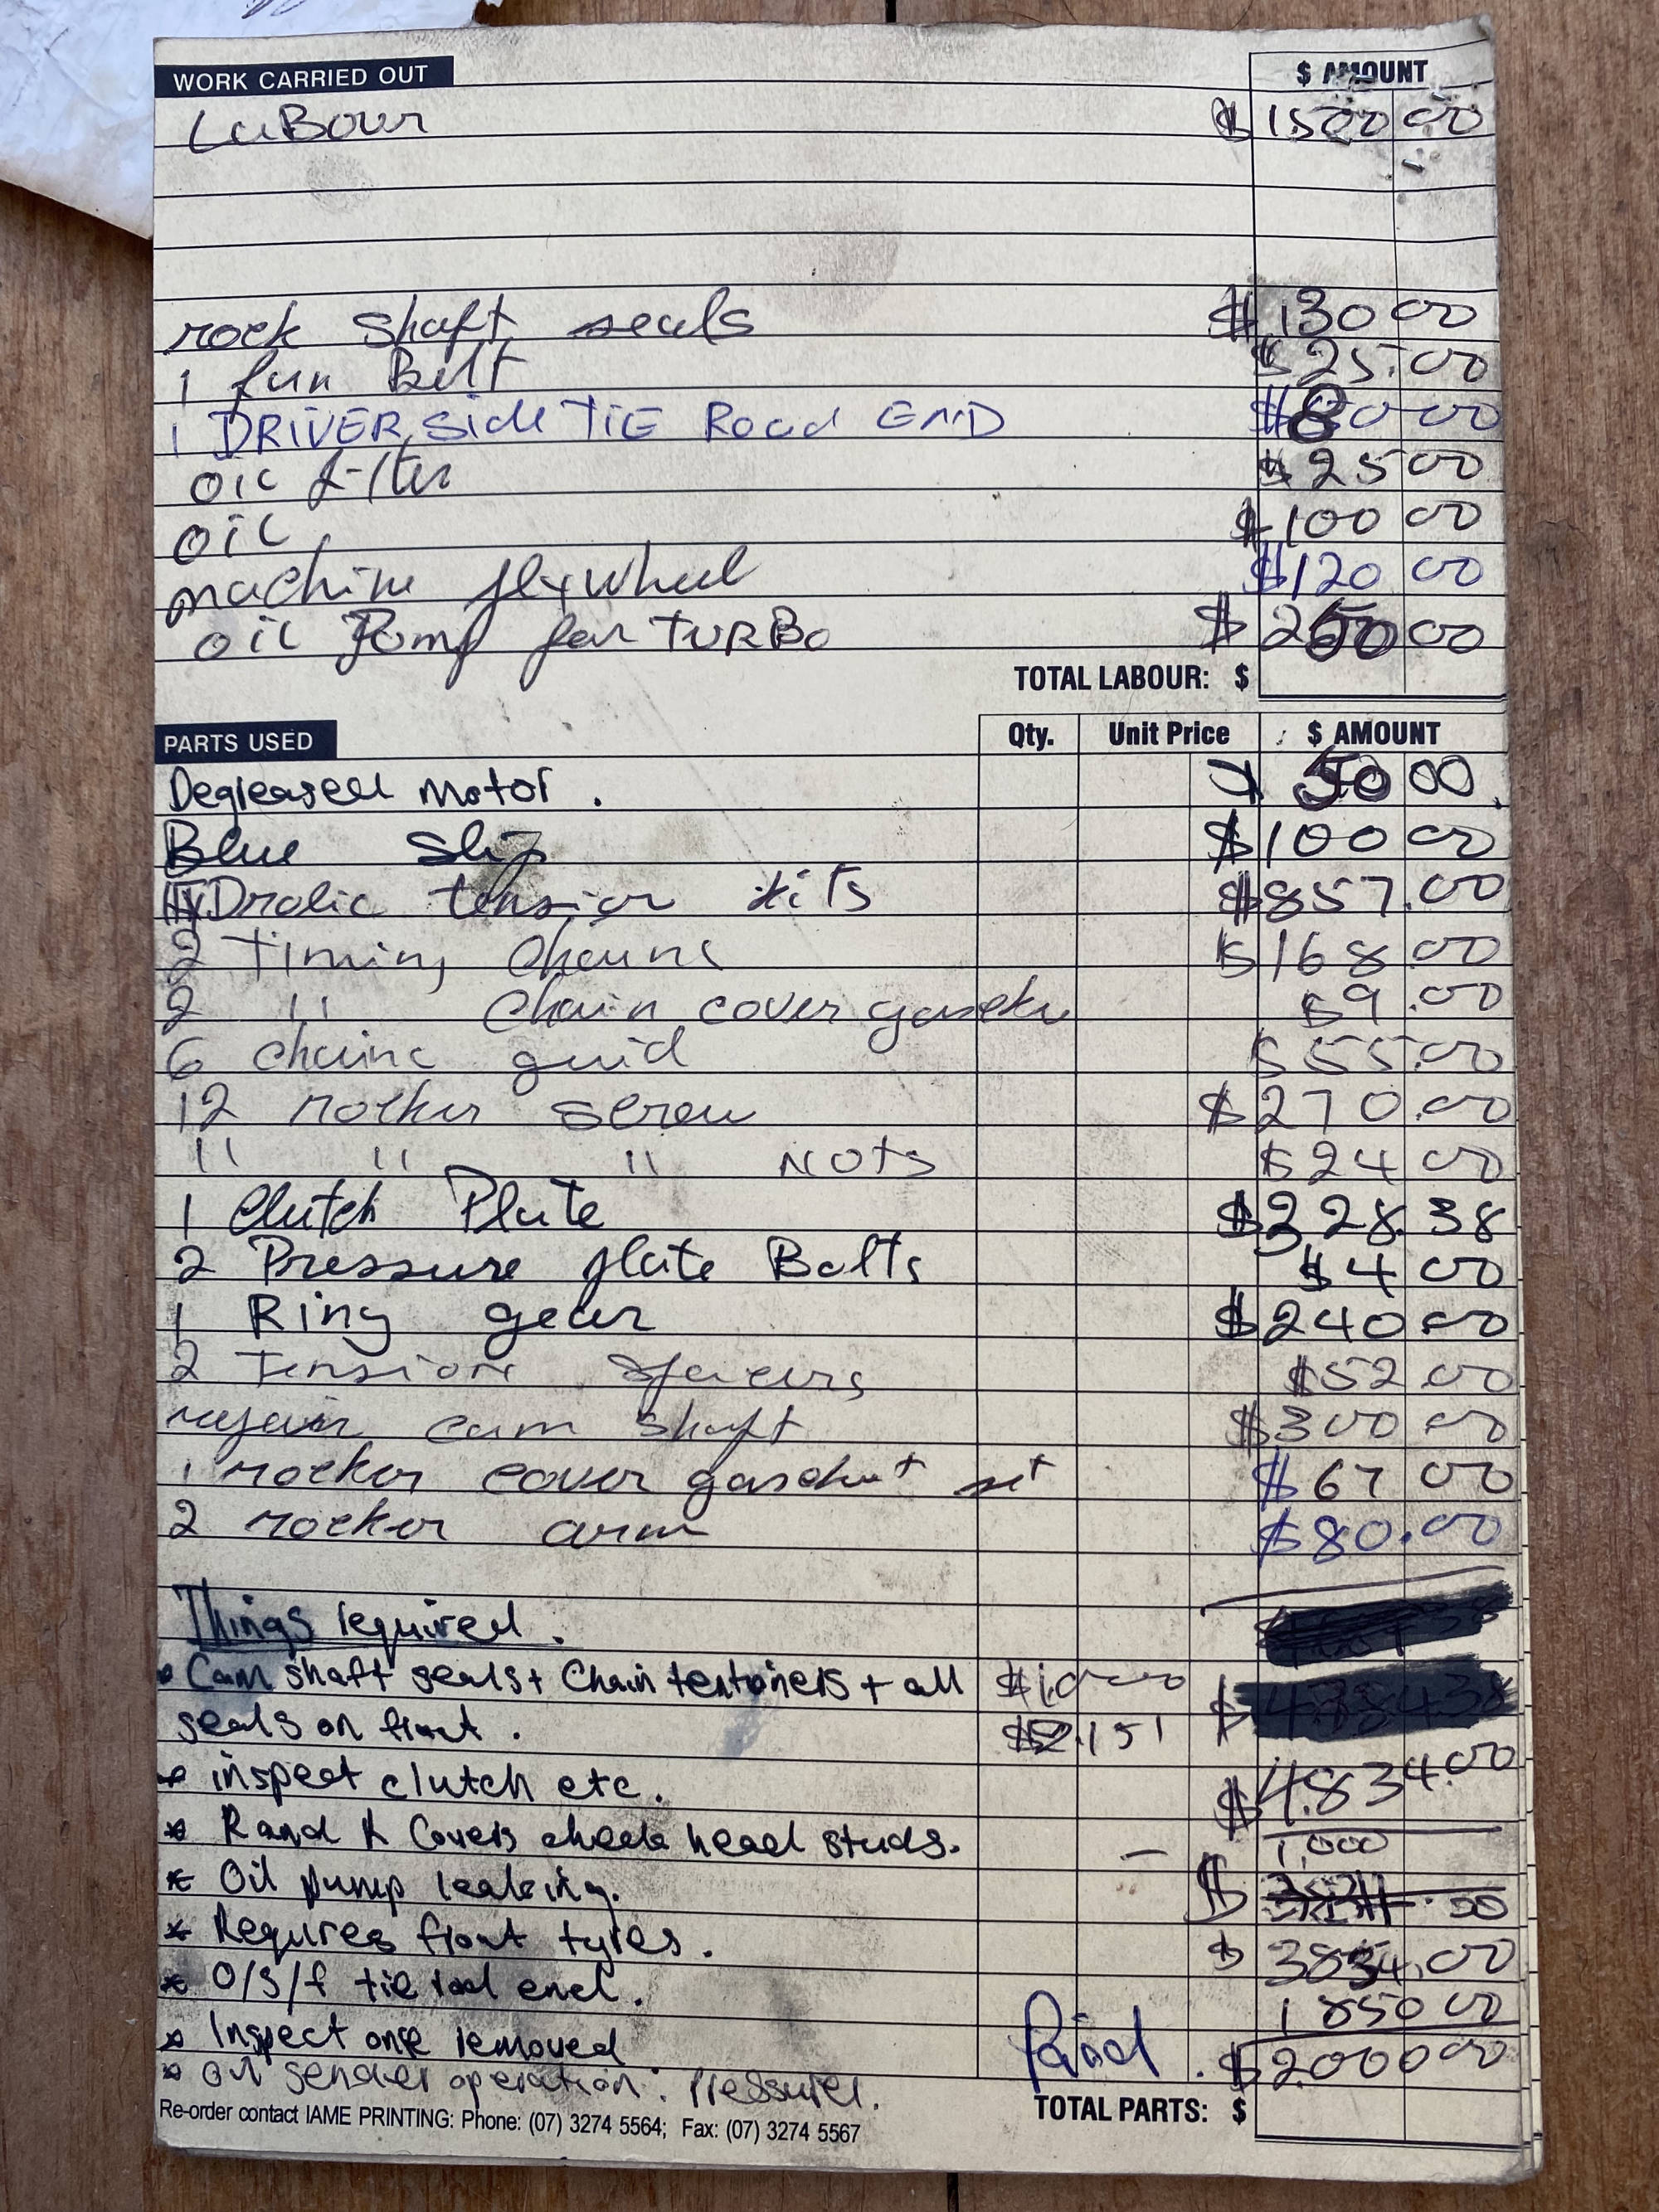 WORK CARRIED OUT $ AMOUNT
LaBour $ 1500 00
rock shaft seals $ 130 00
1 fan Belt $ 25.00
1 DRIVER side TIE Road END $ 80 00
oil filter $ 25 00
oil $ 100 00
machine flywheel $ 120 00
oil Pomp for TURBo $ 250 00
TOTAL LABOUR: $
PARTS USED Qty. Unit Price $ AMOUNT
Degreased motor. 50 00
Blue Slip $ 100 00
HyDrolic tension kits $ 857.00
2 Timing Chains $ 168.00
2 " Chain cover gaskets $ 9.00
6 chaine guid $ 55.00
12 rocker screw $ 270.00
" " " NOTS $ 24 00
1 Clutch Plate $ 328.38
2 Pressure plate Bolts $ 4 00
1 Ring gear $ 240.00
2 Tension $ 52.00
repair cam shaft $ 300 00
1 rocker cover gasket set $ 67 00
2 rocker arm $ 80.00
Things required.
• Cam shaft seals + Chain tentioners + all $ $
seals on front. 2.151
inspect clutch etc. $ 4.834.00
* R and R Covers check head studs. – 1,000
* Oil pump leaking. $
* Requires front tyres. $ 3834.00
* O/S/f tie rod end. 1 850 00
* Inspect once removed Paid. $ 2.000 00
* Oil sender operation. Pressure.
TOTAL PARTS: $
Re-order contact IAME PRINTING: Phone: (07) 3274 5564; Fax: (07) 3274 5567